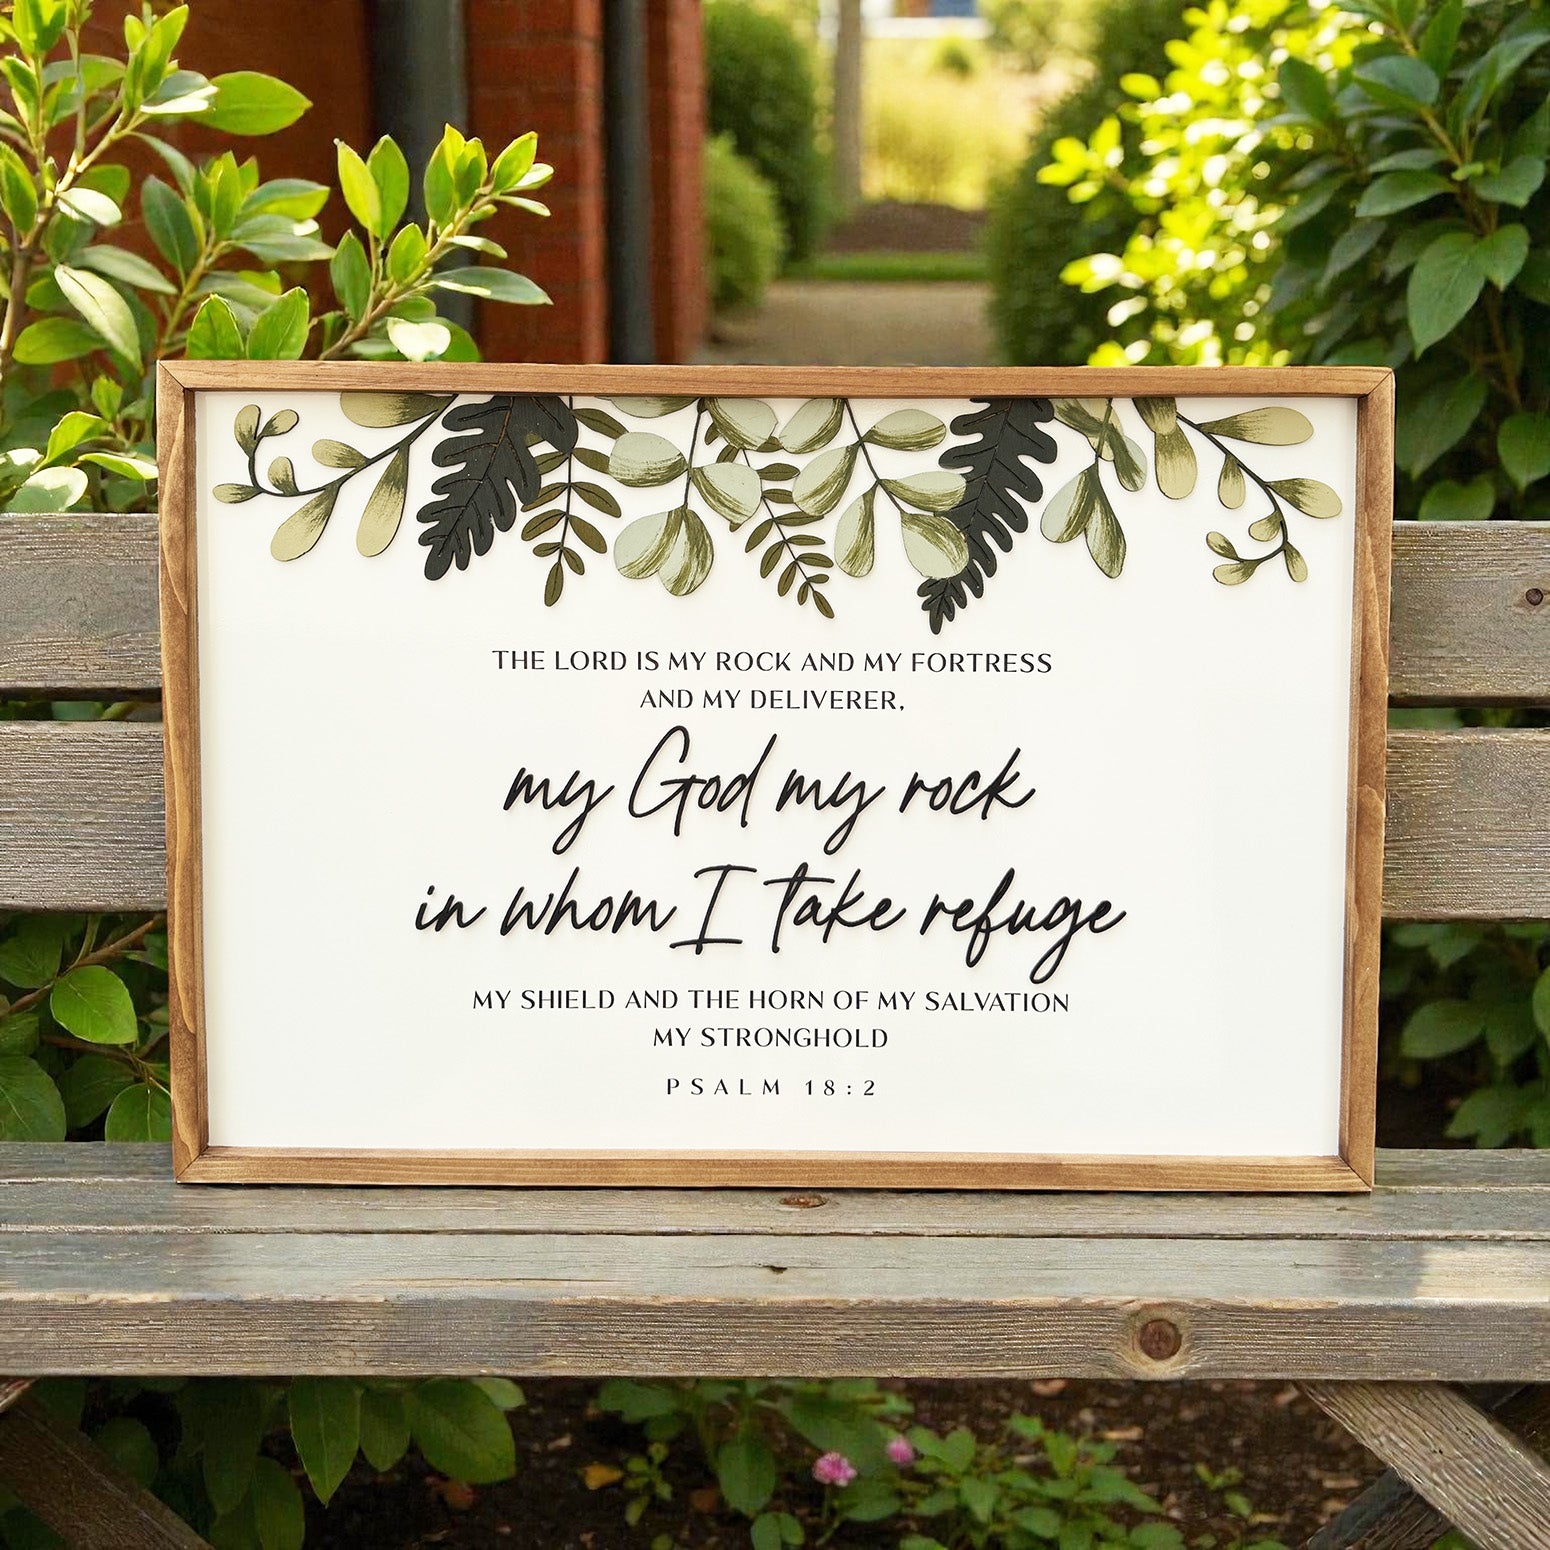 THE LORD IS MY ROCK AND MY FORTRESS
AND MY DELIVERER,
my God my rock
in whom I take refuge
MY SHIELD AND THE HORN OF MY SALVATION
MY STRONGHOLD
PSALM 18:2